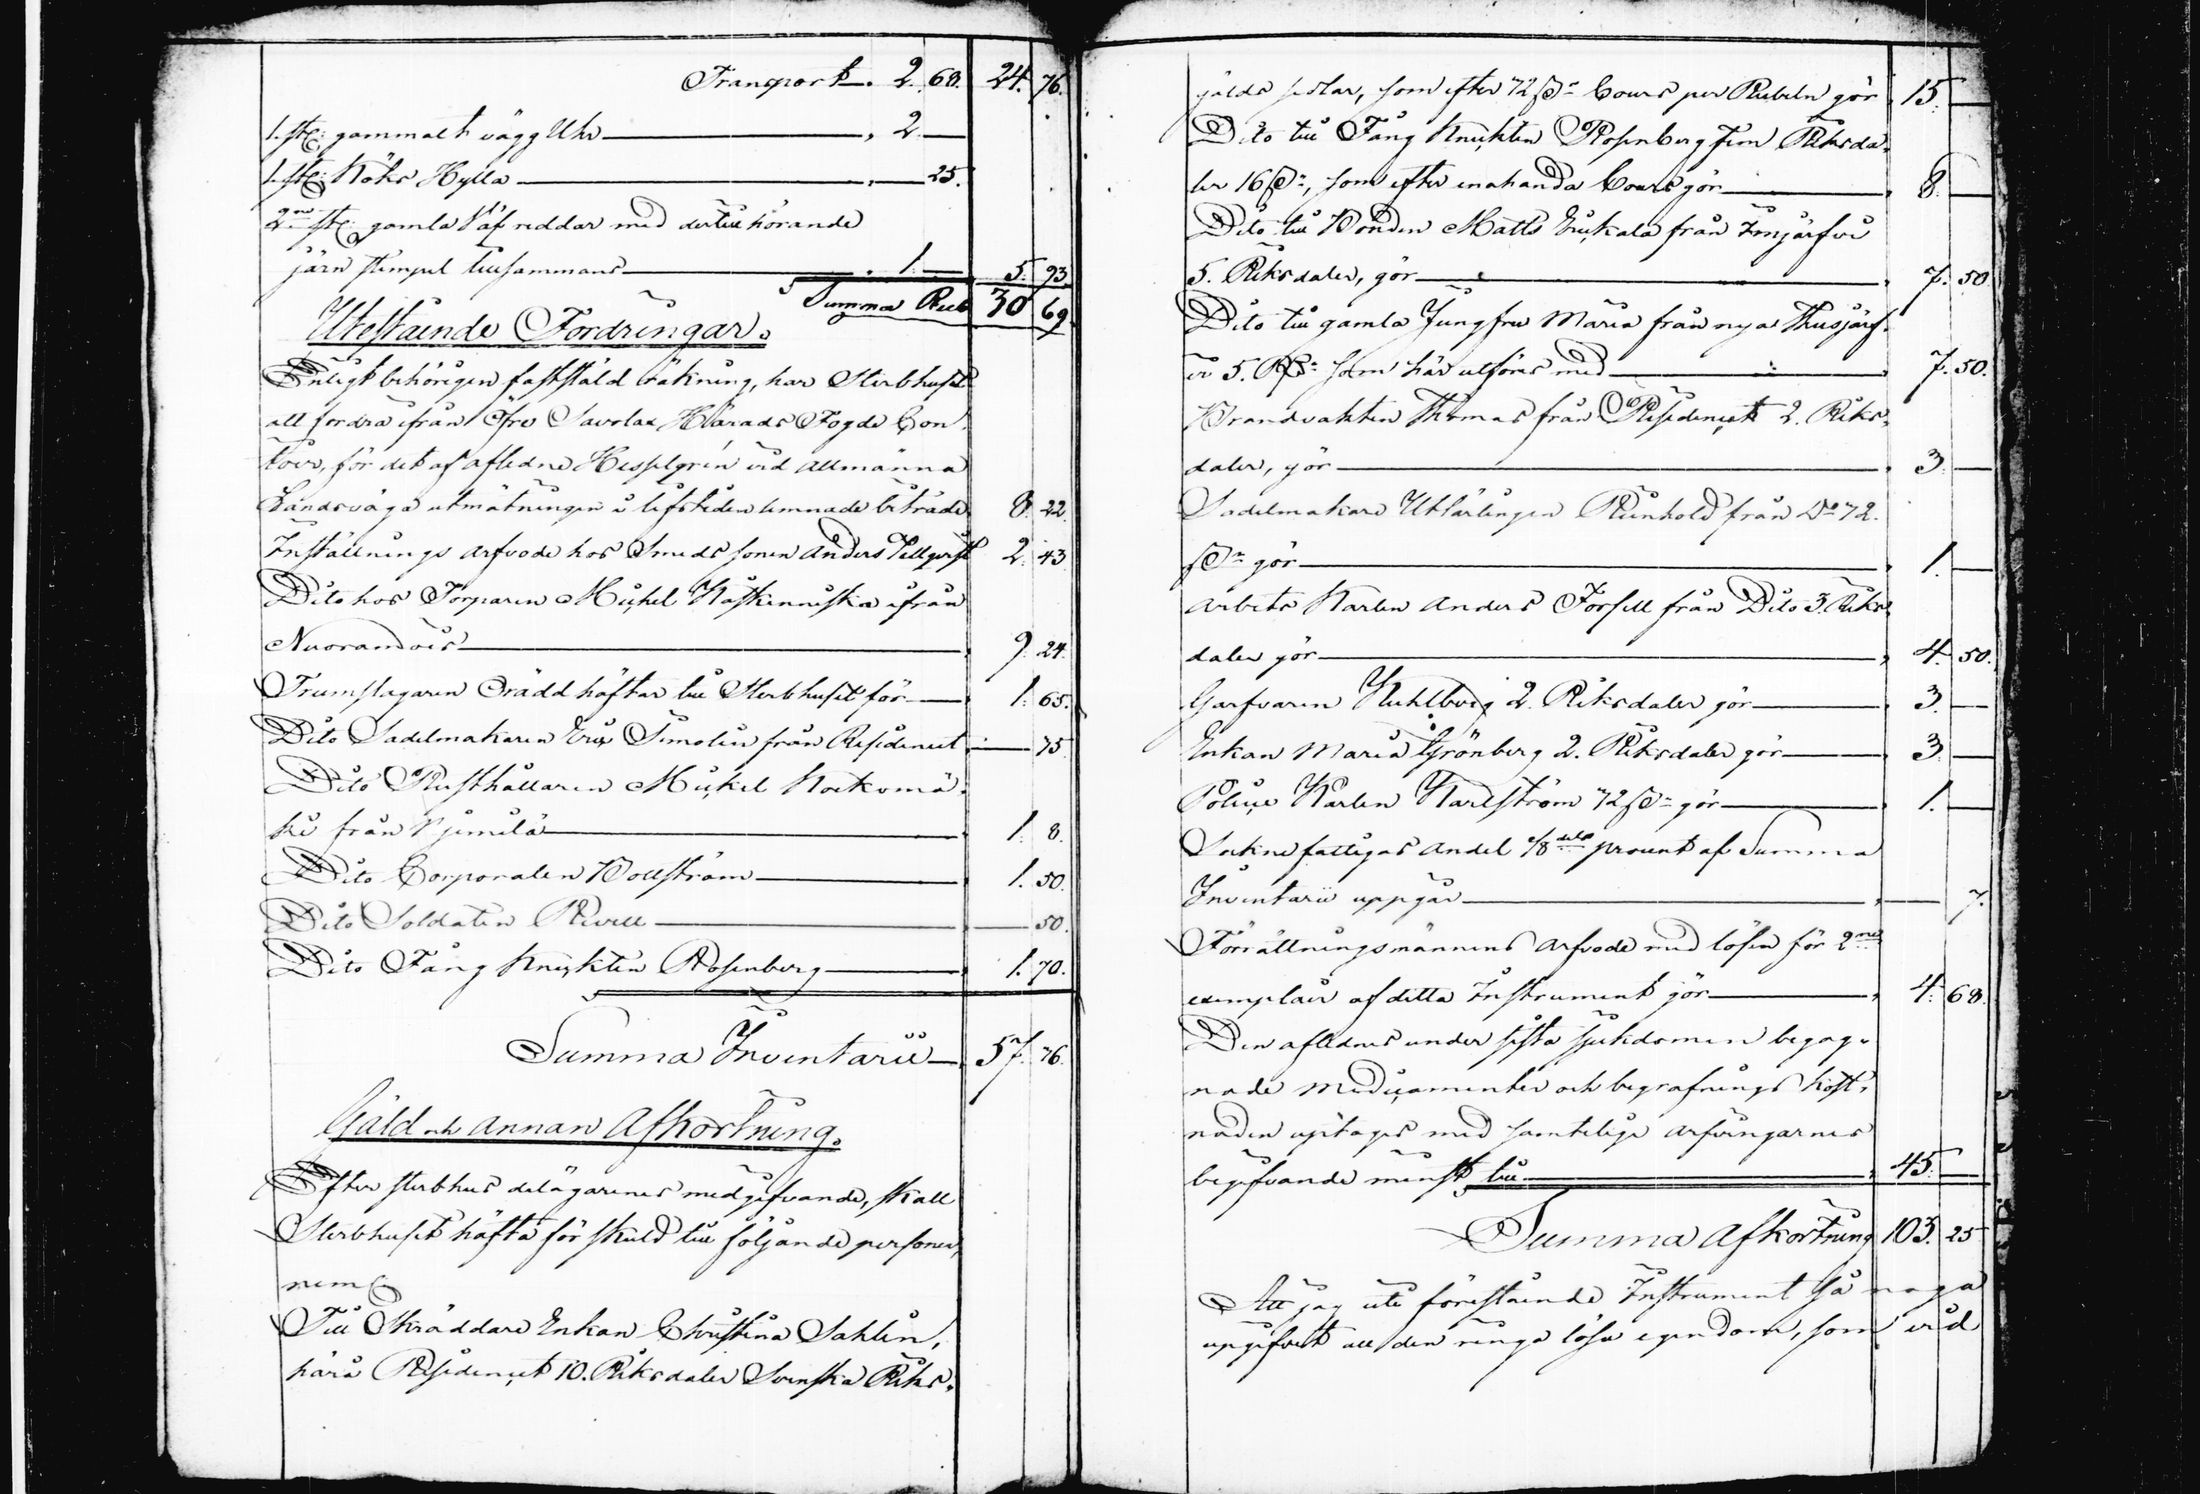 Transport. 2. 68. 24. 76.
1. st: gammalt vägg Uhr 2
1. st: Köks Hylla 25.
2ne st: gamla Väf reddar med dertill hörande
järn stimpel tillsammans 1. 5. 93
Summa Rub 30 69
Utestående Fordringar.
Enligt behörigen faststäld räkning, har Sterbhuset
att fordra ifrån Öfre Savolax Härads Fogde Con-
toir, för det af aflidne Hesselgren vid allmänna
Landsväga utmätningen i lifstiden lemnade biträde 8. 22.
Inställnings arfvode hos Smeds sonen Anders Tellqvist 2. 43
Dito hos Torparen Mickel Kåskenniska ifrån
9. 24.
Trumslagaren Grädd häftar till Sterbhuset för 1. 65.
Dito Sadelmakaren Eric Simolin från Residencet 75
Dito Rusthållaren Mickel Korkomä-
ki från Vjemilä 1. 8.
Dito Corporalen Bollström 1. 50.
Dito Soldaten Rivell 50.
Dito Fång Knekten Rosenberg 1. 70.
Summa Inventarii 57. 76.
Gäld och annan Afkortning.
Efter sterbhus delägarenes medgifvande, skall
Sterbhuset häfta för skuld till följande personer,
neml
Till Skräddare Enkan Christina Sahlin,
härå Residencet 10. Riksdaler Svenska Riks-
gälds sedlar, som efter 72 s:r Cours per Rubeln gör 15.
Dito till Fång Knekten Rosenberg fem Riksda-
ler 16 s:r, som efter enahanda Cours gör 8.
Dito till Bonden Matts Erickala från Immjärfvi
5. Riksdaler, gör 7. 50.
Dito till gamla Jungfru Maria från nya Thusjärf-
vi 5. R:dr som här utföres med 7. 50.
Brandvakten Thomas från Residencet 2. Riks-
daler, gör 3.
Sadelmakare Utlärlingen Reinhold från Do 72.
s:r gör 1.
Arbets Karlen Anders Forsell från Dito 3. Riks-
daler gör 4. 50.
Garfvaren Kuhlberg 2. Riksdaler gör 3.
Enkan Maria Grönberg 2. Riksdaler gör 3.
Police Karlen Karlström 72 s:r gör 1.
Sockne fattigas andel 1/8 dels procent af Summa
Inventarii uppgår 7.
Förrättningsmännens arfvode med lösen för 2ne
exemplair af detta Instrument gör 4. 68.
Den aflidnes under sista sjukdomen begag-
nade medicamenter och begrafnings kost-
naden uptages med samtelige arfvingarnes
begifvande minst till 45.
Summa Afkortning 103. 25
Att jag uti förestående Instrument så noga
upgifvit all den ringa lösa egendom, som vid